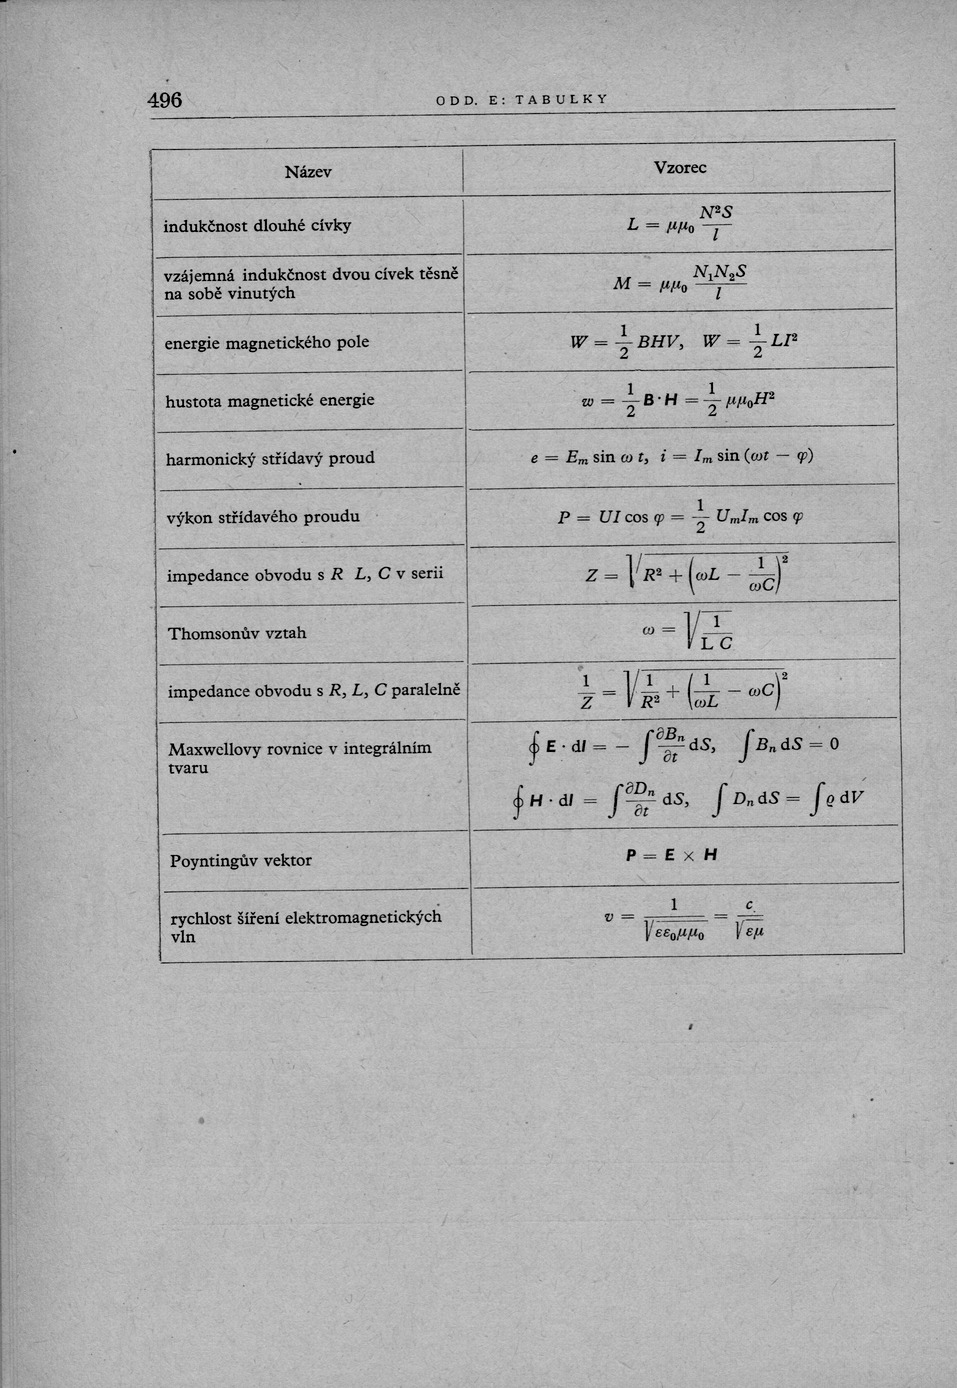 496 ODD. E: TABULKY
Název Vzorec
indukčnost dlouhé cívky L = μμ₀ N²S/l
vzájemná indukčnost dvou cívek těsně
na sobě vinutých M = μμ₀ N₁N₂S/l
energie magnetického pole W = 1/2 BHV, W = 1/2 LI²
hustota magnetické energie w = 1/2 B · H = 1/2 μμ₀H²
harmonický střídavý proud e = Eₘ sin ω t, i = Iₘ sin (ωt − φ)
výkon střídavého proudu P = UI cos φ = 1/2 UₘIₘ cos φ
impedance obvodu s R L, C v serii Z = √(R² + (ωL − 1/ωC)²)
Thomsonův vztah ω = √(1/L C)
impedance obvodu s R, L, C paralelně 1/Z = √(1/R² + (1/ωL − ωC)²)
Maxwellovy rovnice v integrálním
tvaru
∮ E · dl = − ∫ ∂Bₙ/∂t dS, ∫ Bₙ dS = 0
∮ H · dl = ∫ ∂Dₙ/∂t dS, ∫ Dₙ dS = ∫ ϱ dV
Poyntingův vektor P = E × H
rychlost šíření elektromagnetických
vln v = 1/√(εε₀μμ₀) = c/√(εμ)